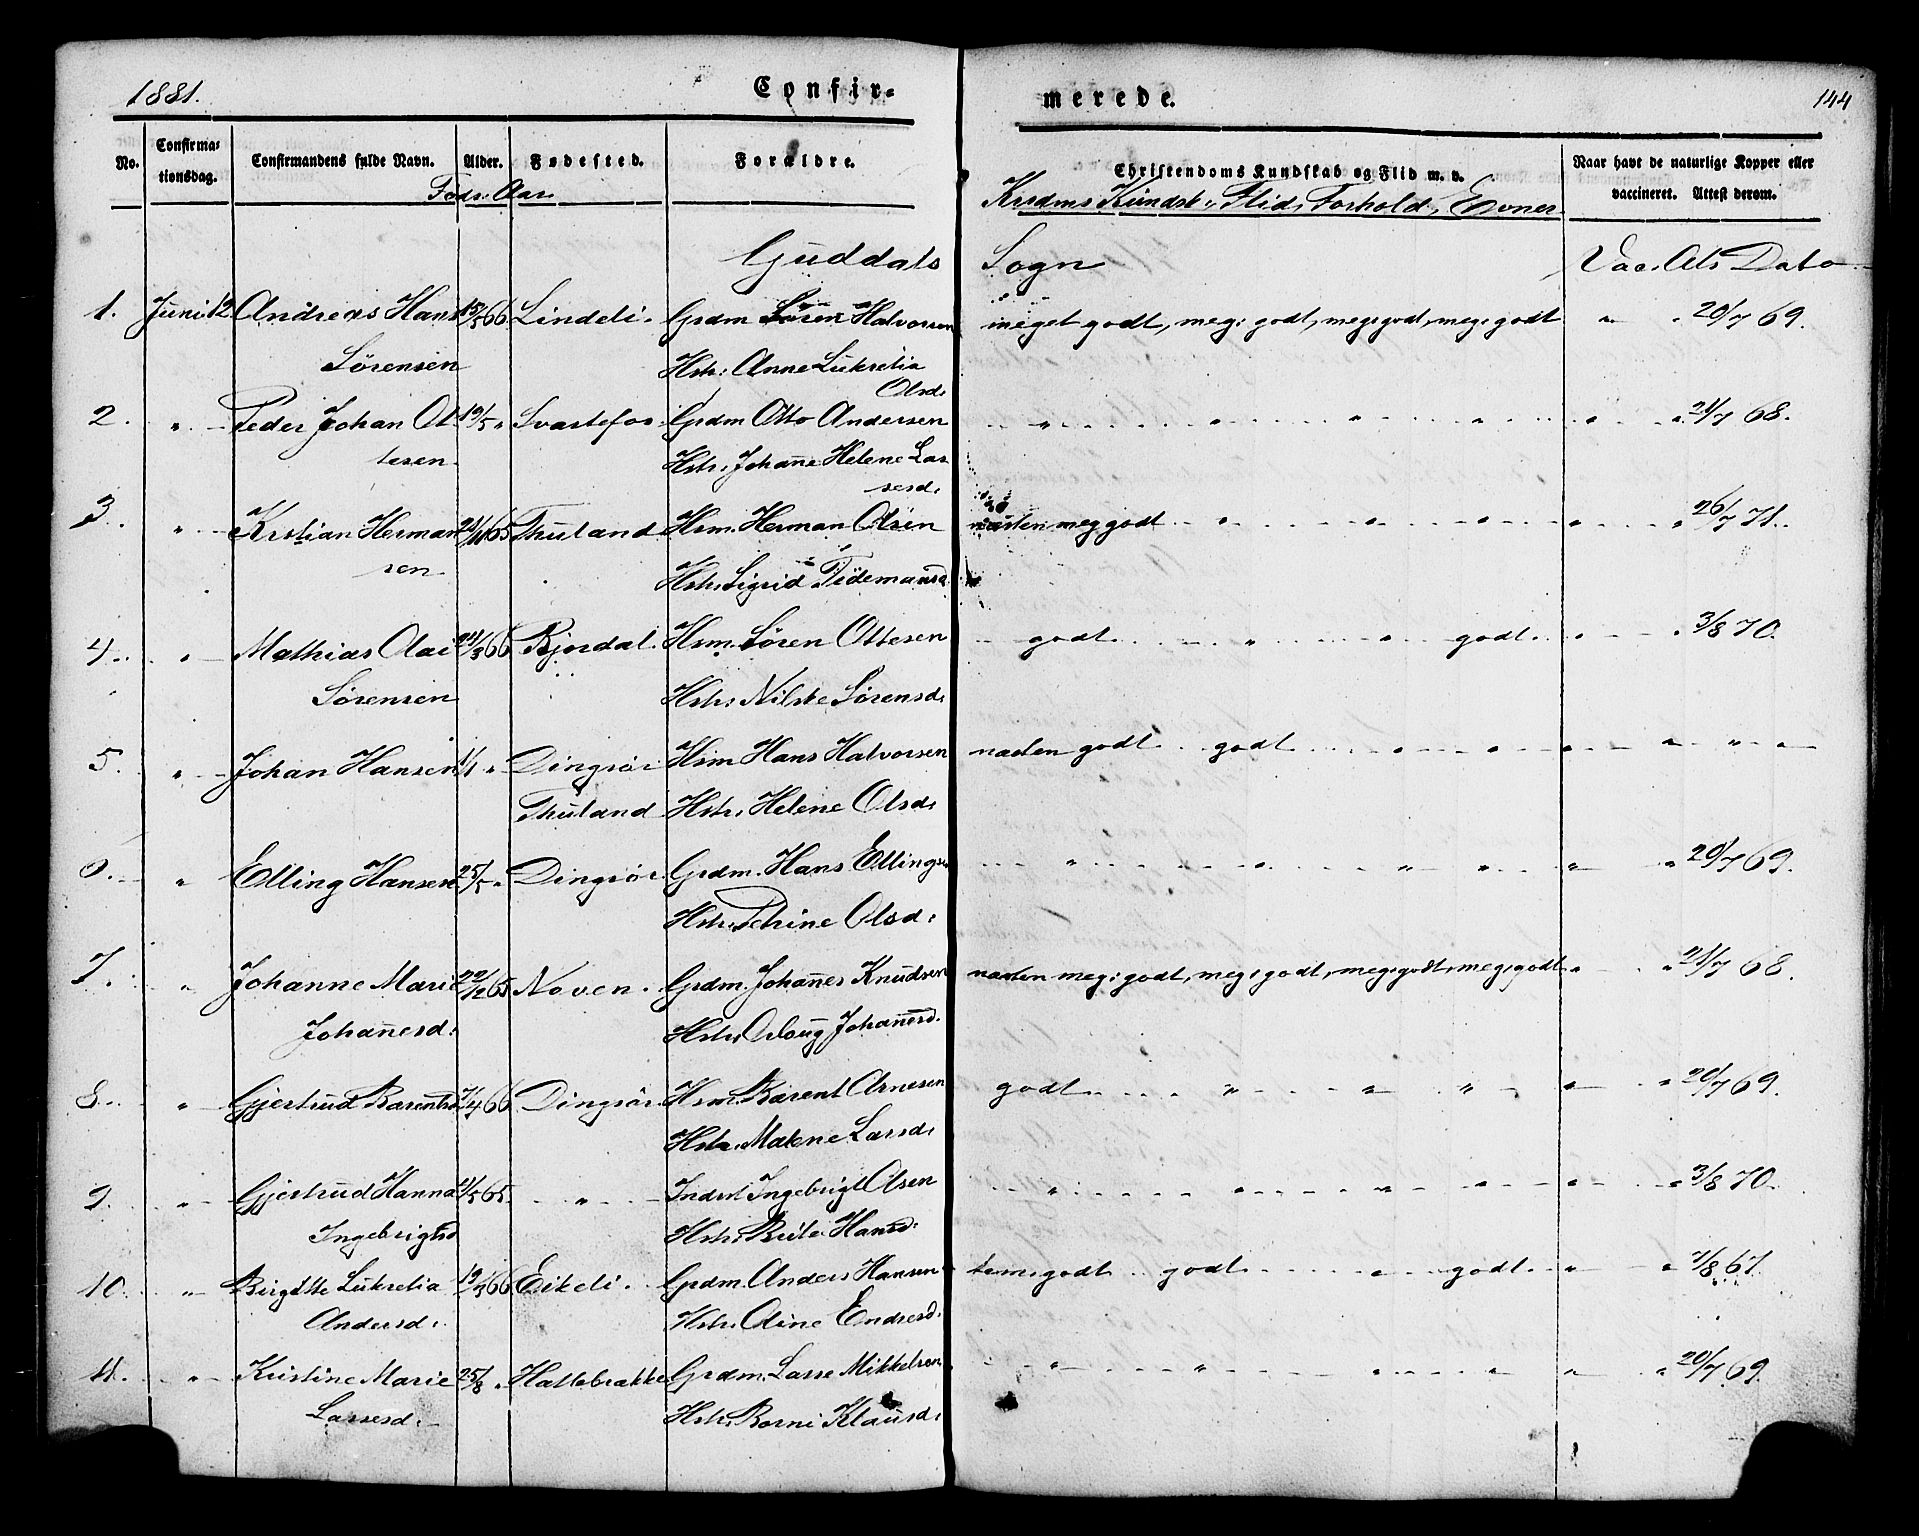 1881.
Confir-
merede.
144
No. Confirma- Confirmandens fulde Navn. Alder. Fødested. Forældre. Christendoms Kundskab og Flid m. v. Naar havt de naturlige Kopper eller
tionsdag. vaccineret. Attest derom.
Føds: Aar
Krsdms Kundsk:, Flid, Forhold, Evner
Guddals Sogn Vac. Ats Dato
1. Juni 12 Andreas Hans 15/5 66 Lindeli. Grdm Sören Halvorsen meget godt, meg: godt, meg: godt, meg: godt " " 20/7 69.
Sørensen Hstr: Anne Lukretia
Olsd:
2. " Peder Johan Ot- 19/5 " Svartefos. Grdm Otto Andersen " " " " " " 21/7 68.
tesen. Hstr: Johanne Helene Las-
sesd:
3. " Kristian Herman- 21/11 65 Thuland Hsm. Herman Olsen næsten meg godt " " " " " 26/7 71.
sen Hstr: Sigrid Tidemansd
4. " Mathias Olai 24/3 66 Bjordal. Hsm. Sören Ottesen godt " " godt " " 3/8 70.
Sørensen Hstr: Nilske Sörensd:
5. " Johan Hansen 1/1 " Dingsör Hsm Hans Halvorsen næsten godt godt " " " " "
Thuland Hstr: Helene Olsd:
6. " Elling Hansen 25/5 " Dingsör. Grdm. Hans Ellings " " " " " " 20/7 69.
Hstr: Petrine Olsd:
7. " Johanne Marie 22/12 65 Noven. Grdm. Johannes Knudsen næsten meg: godt, meg: godt, meg: godt, meg: godt " " 21/7 68.
Johannesd: Hstr: Johannesd.
8. " Gjertrud Barentsd 7/4 66 Dingsör. Hsm. Barent Arnesen godt " " " " " 20/7 69.
Hstr: Malene Larsd:
9. " Gjertrud Hanna 21/5 65. " Indst Ingebrigt Olsen " " " " " 3/8 70.
Ingebrigtsd Hstr: Brite Hansd:
10. " Birgitte Lukretia 19/3 66 Eikeli. Grdm. Anders Hansen tem: godt godt " godt " " 7/8 67.
Andersd: Hstr: Oline Endresd:
11. " Kristine Marie 25/8 " Hattebrække Grdm. Lasse Mikkelsen " " " " " " " 20/7 69.
Lassesd. Hstr: Borni Klausd: